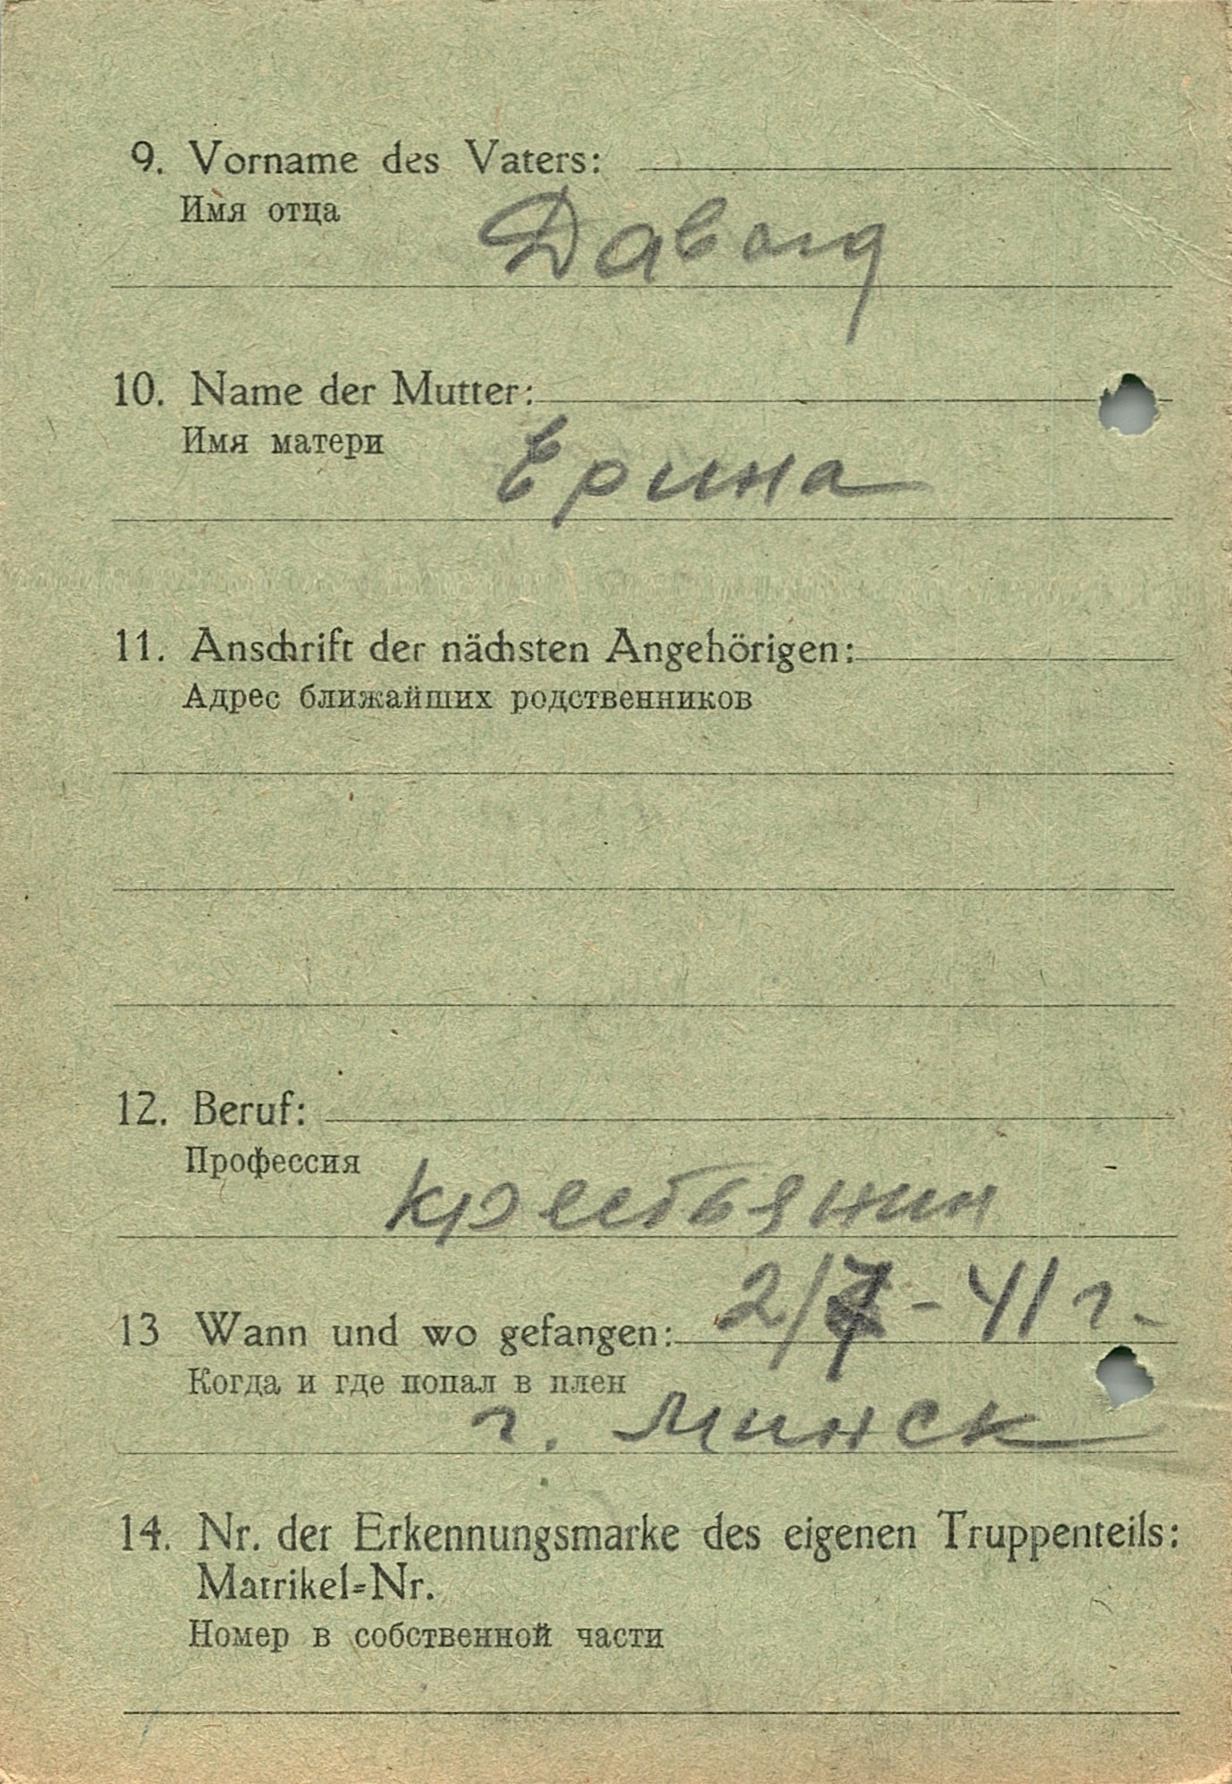 9. Vorname des Vaters:
Имя отца
Давыд
10. Name der Mutter:
Имя матери
Ерина
11. Anschrift der nächsten Angehörigen:
Адрес ближайших родственников
12. Beruf:
Профессия
крестьянин
13 Wann und wo gefangen: 2/7-41 г.
Когда и где попал в плен
г. Минск
14. Nr. der Erkennungsmarke des eigenen Truppenteils:
Matrikel-Nr.
Номер в собственной части